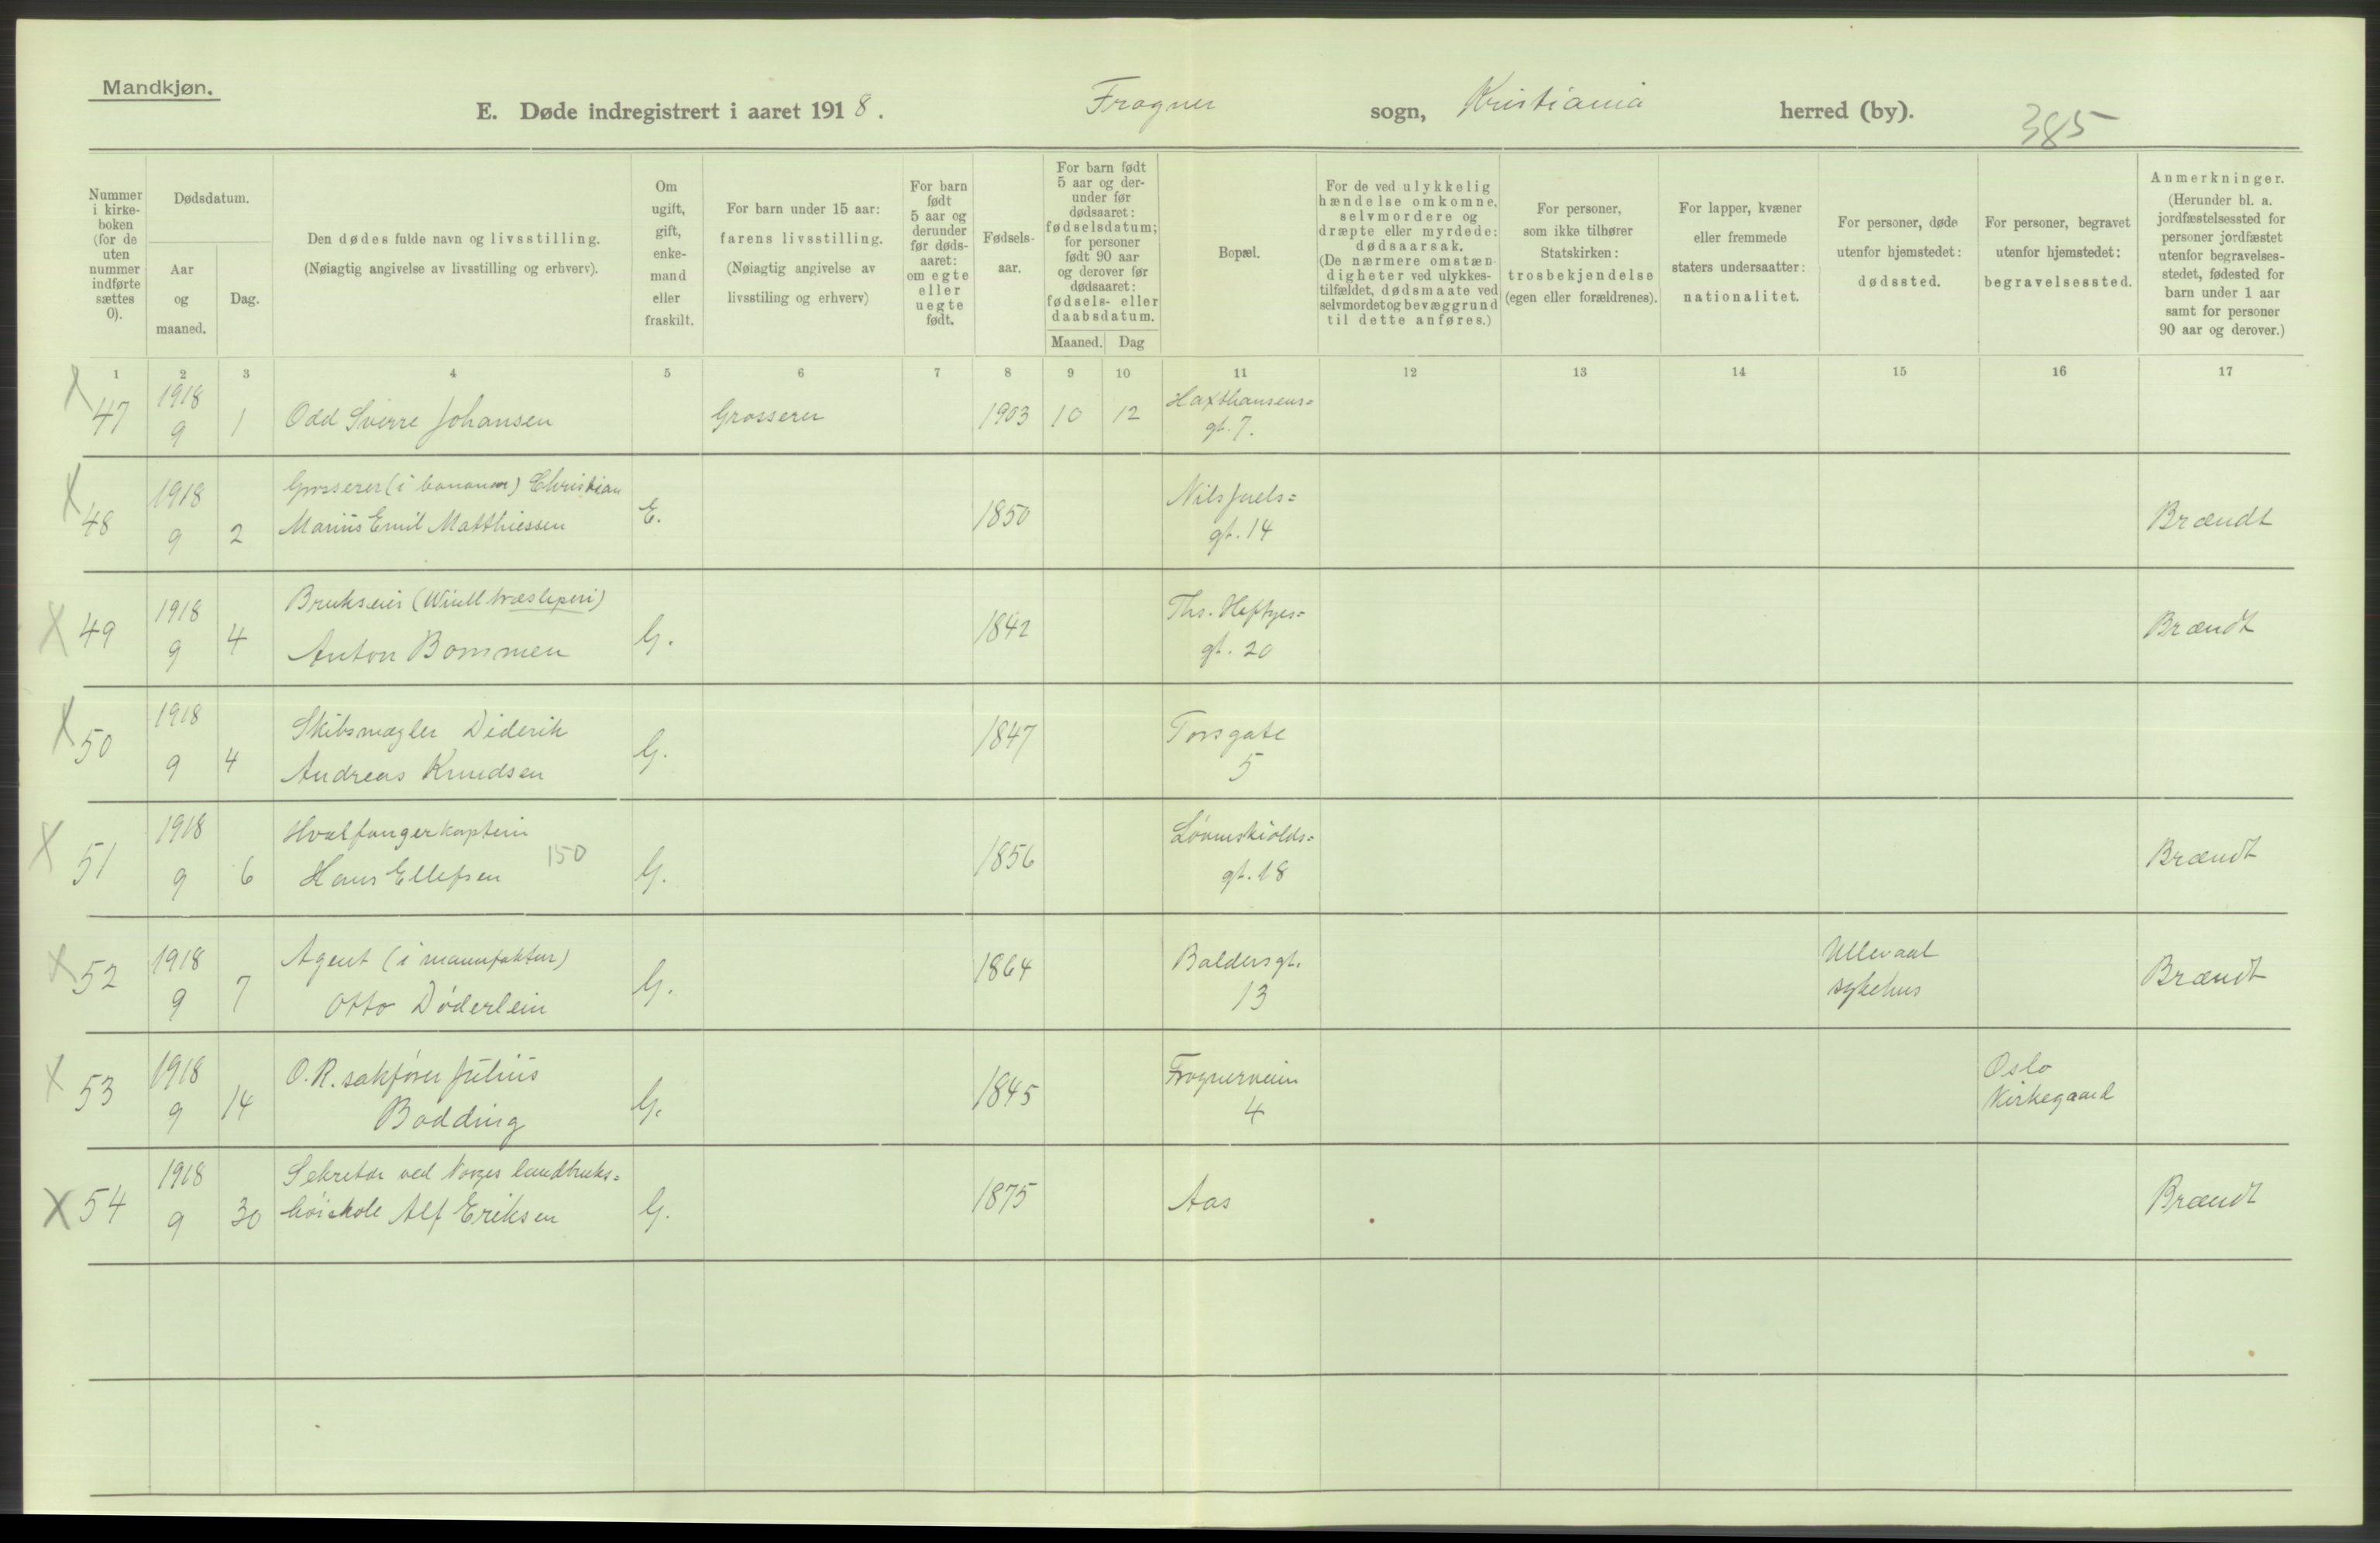 Mandkjøn.
E. Døde indregistrert i aaret 1918. Frogner sogn, Kristiania herred (by). 385
Nummer i kirke-boken (for de uten nummer indførte sættes 0).
Dødsdatum.
Aar og maaned.
Dag.
Den dødes fulde navn og livsstilling.
(Nøiagtig angivelse av livsstilling og erhverv).
Om ugift, gift, enke-mand eller fraskilt.
For barn under 15 aar: farens livsstilling.
(Nøiagtig angivelse av livsstiling og erhverv)
For barn født 5 aar og derunder før døds-aaret: om egte eller uegte født.
Fødsels-aar.
For barn født 5 aar og der-under før dødsaaret: fødselsdatum; for personer født 90 aar og derover før dødsaaret: fødsels- eller daabsdatum.
Maaned. Dag
Bopæl.
For de ved ulykkelig hændelse omkomne, selvmordere og dræpte eller myrdede: dødsaarsak.
(De nærmere omstæn-digheter ved ulykkes-tilfældet, dødsmaate ved selvmordet og bevæggrund til dette anføres.)
For personer, som ikke tilhører Statskirken: trosbekjendelse (egen eller forældrenes).
For lapper, kvæner eller fremmede staters undersaatter: nationalitet.
For personer, døde utenfor hjemstedet: dødssted.
For personer, begravet utenfor hjemstedet: begravelsessted.
Anmerkninger.
(Herunder bl. a. jordfæstelsessted for personer jordfæstet utenfor begravelses-stedet, fødested for barn under 1 aar samt for personer 90 aar og derover.)
1 2 3 4 5 6 7 8 9 10 11 12 13 14 15 16 17
X 47 1918 9 1 Odd Sverre Johansen Grosserer 1903 10 12 Haxthausens=
gt. 7.
X 48 1918 9 2 Grosserer (i) Christian
Marius Emil Matthiessen E. 1850 Nils Juels=
gt. 14 Brændt
X 49 1918 9 4 Brukseier (træsliperi)
Anton Bommen G. 1842 Ths. Heftyes=
gt. 20 Brændt
X 50 1918 9 4 Skibsmægler Diderik
Andreas Knudsen G. 1847 Torsgate
5
X 51 1918 9 6 Hvalfangerkaptein
Hans Ellefsen 150 G. 1856 Løvenskiolds=
gt. 18 Brændt
X 52 1918 9 7 Agent (i manufaktur)
Otto Døderlein G. 1864 Baldersgt.
13 Ullevaal
sykehus Brændt
X 53 1918 9 14 O. R. sakfører Julius
Bødding G. 1845 Frognerveien
4 Oslo
Kirkegaard
X 54 1918 9 30 Sekretær ved Norges landbruks=
høiskole Alf Eriksen G. 1875 Aas Brændt